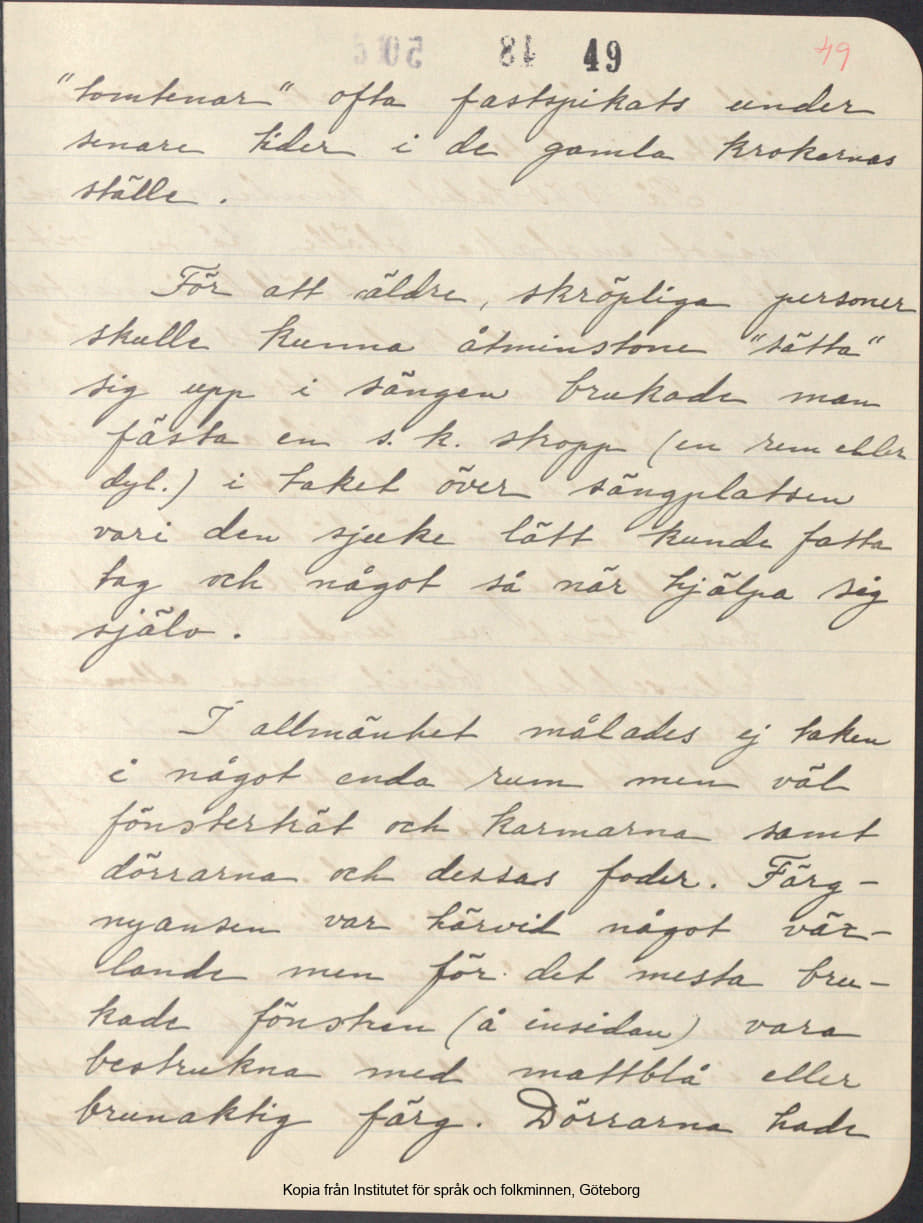 49 49
"tomtenar" ofta fastspikats under
senare tider i de gamla krokarnas
ställe.
För att äldre, skröpliga personer
skulle kunna åtminstone "sätta"
sig upp i sängen brukade man
fästa en s. k. stropp (en rem eller
dyl.) i taket över sängplatsen
vari den sjuke lätt kunde fatta
tag och något så när hjälpa sig
själv.
I allmänhet målades ej taken
i något enda rum men väl
fönsterträt och karmarna samt
dörrarna och dessas foder. Färg-
nyansen var härvid något väx-
lande men för det mesta bru-
kade fönstren (å insidan) vara
bestrukna med mattblå eller
brunaktig färg. Dörrarna hade
Kopia från Institutet för språk och folkminnen, Göteborg